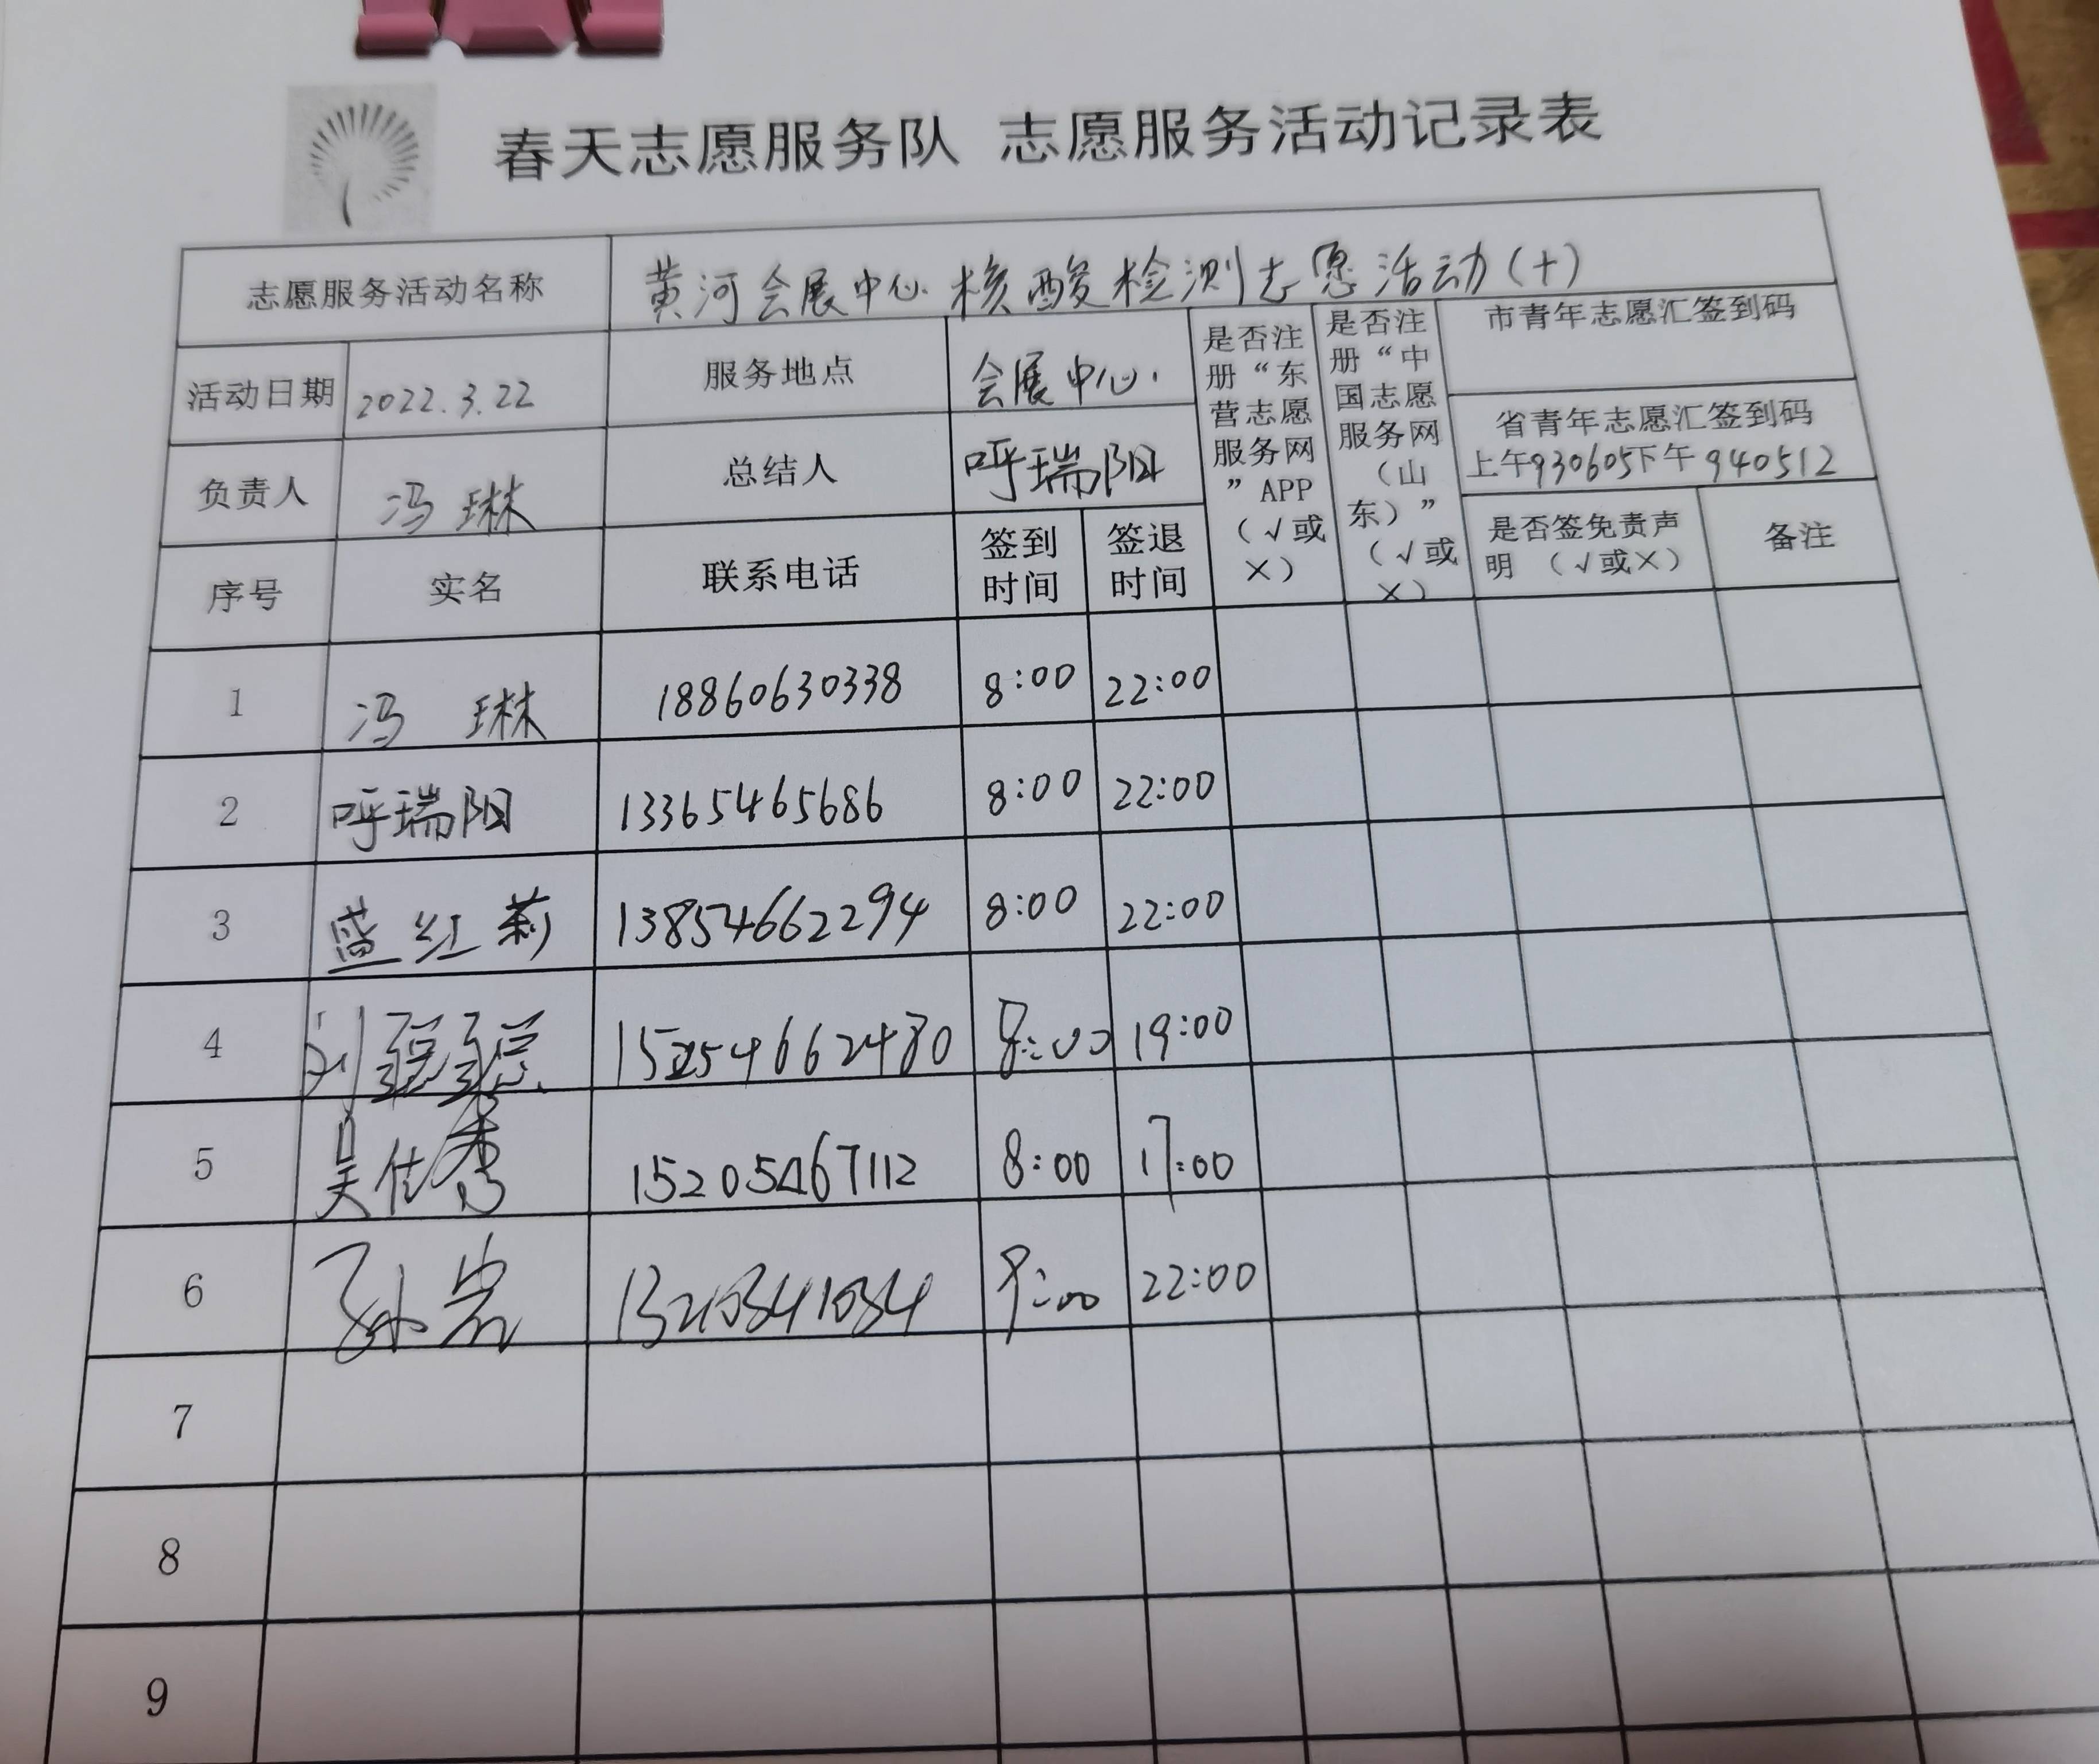 春天志愿服务队 志愿服务活动记录表
志愿服务活动名称 黄河会展中心核酸检测志愿活动(十)
活动日期 2022.3.22 服务地点 会展中心
是否注册“东营志愿服务网”APP（√或×）
是否注册“中国志愿服务网（山东）”（√或×）
市青年志愿汇签到码
省青年志愿汇签到码
上午930605下午940512
负责人 冯琳 总结人 呼瑞阳
序号 实名 联系电话 签到时间 签退时间 是否签免责声明（√或×） 备注
1 冯琳 18860630338 8:00 22:00
2 呼瑞阳 13365465686 8:00 22:00
3 盛红莉 13854662294 8:00 22:00
4 刘 15254662480 8:00 19:00
5 吴仕秀 15205467112 8:00 17:00
6 孙岩 22:00
7
8
9